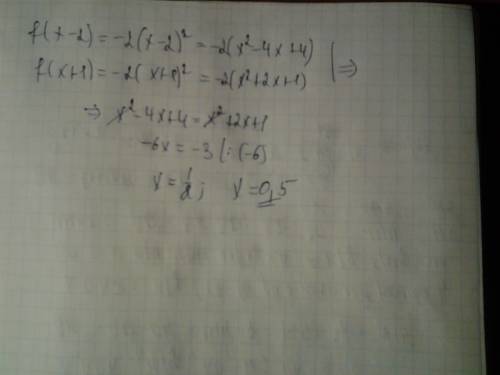 f(x-2)=-2(x-2)²=-2(x²-4x+4)
f(x+1)=-2(x+1)²=-2(x²+2x+1) | ⇒
⇒ x²-4x+4=x²+2x+1
-6x=-3 |:(-6)
x=1/2; x=0,5